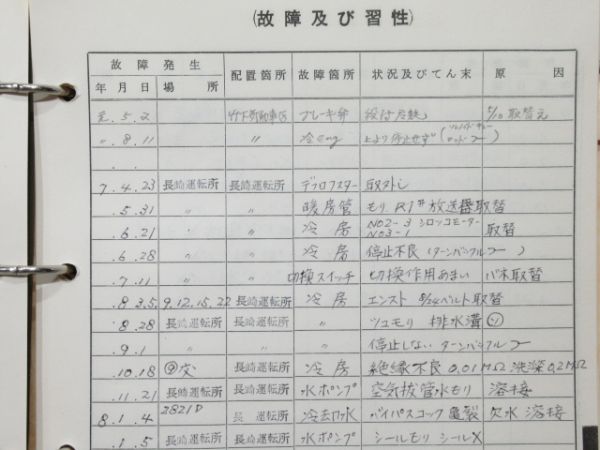 (故障及び習性)
故障発生 配置箇所 故障箇所 状況及びてん末 原因
年月日 場所
元.5.2 竹下気動車区 ブレーキ弁 5/10取替え
〃.8.11 〃 冷eng 停止せず
7.4.23 長崎運転所 長崎運転所 デフロスター 取外し
.5.31 〃 暖房管 もり R1# 放送器取替
.6.21 〃 冷房 NO2-3 NO3-1 シロッコモーター 取替
.6.28 〃 冷房 停止不良 (ターンバックルフー)
.7.11 〃 切換スイッチ 切換作用あまい バネ取替
.8 3.5.9.12.15.22 長崎運転所 冷房 エンスト ベルト取替
.8.28 長崎運転所 長崎運転所 〃 ツユモリ 排水溝
.9.1 〃 〃 停止しない ターンバックルフー
.10.18 長崎運転所 冷房 絶縁不良 0.01MΩ 洗滌0.2MΩ
.11.21 長崎運転所 長崎運転所 水ポンプ 空気抜管水もり 溶接
8.1.4 2821D 長 運転所 冷却水 バイパスコック亀製 欠水 溶接
.1.5 長崎運転所 長崎運転所 水ポンプ シールモリ シールX